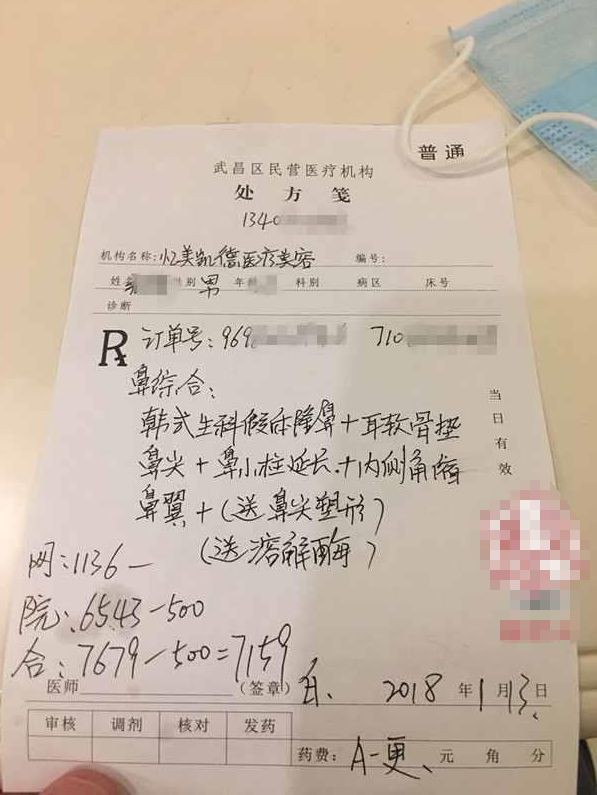 普通
武昌区民营医疗机构
处方笺
1340
机构名称:忆美凯德医疗美容 编号:
姓名 性别 男 年龄 科别 病区 床号
诊断
R 订单号:969 710
鼻综合:
韩式生科假体隆鼻+耳软骨垫
鼻尖+鼻小柱延长+内侧角缩
鼻翼+(送鼻尖塑形)
(送溶解酶)
当日有效
网:1136-
院:6543-500
合:7679-500=7159
医师 (签章) 2018年1月13日
审核 调剂 核对 发药
药费: A-更、元 角 分